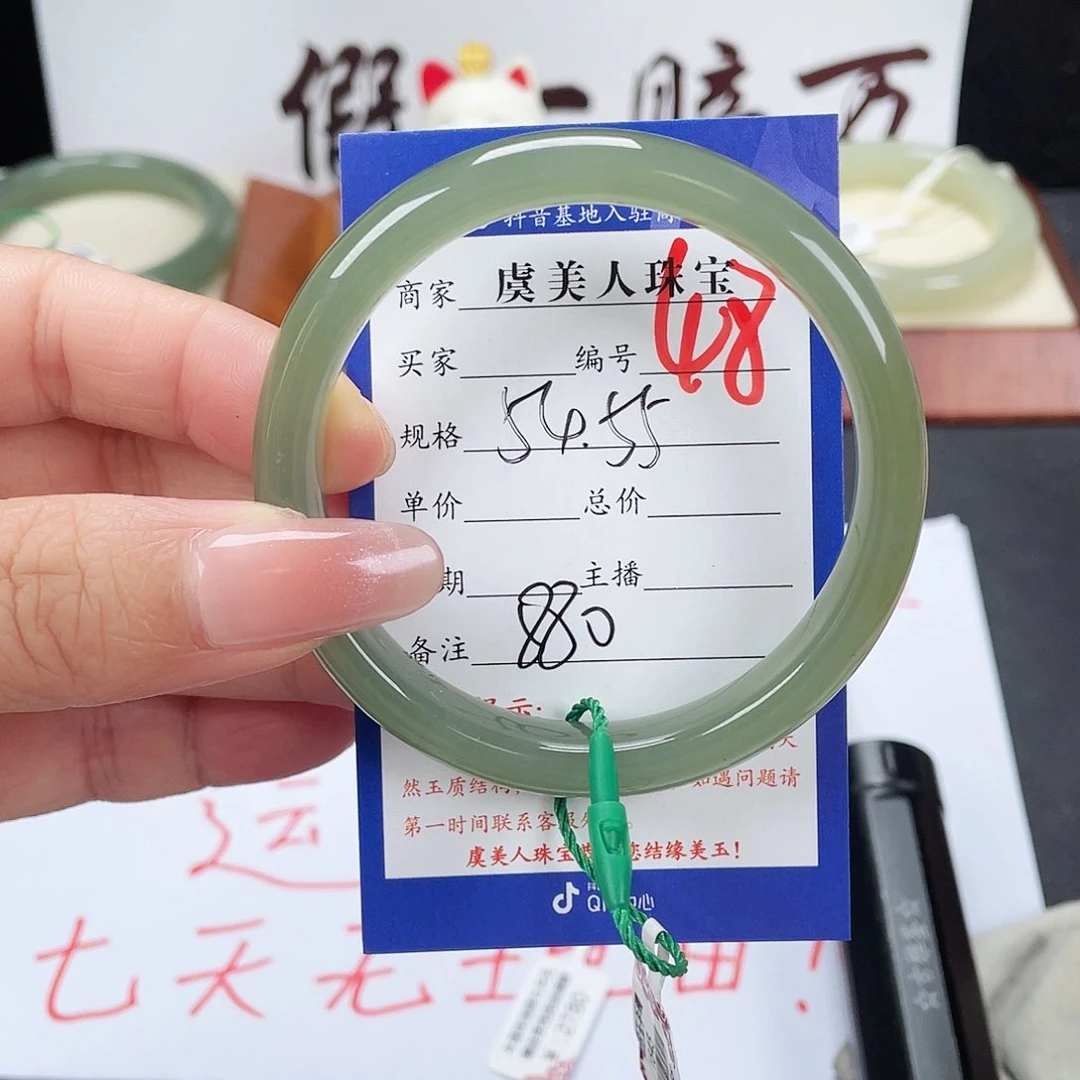 假一赔万
抖音基地入驻商
商家 虞美人珠宝
买家 编号 48
规格 54.55
单价 总价
期 主播
备注 880
示:
然玉质结构 如遇问题请
第一时间联系客服
虞美人珠宝 您结缘美玉!
运
七天无理由!